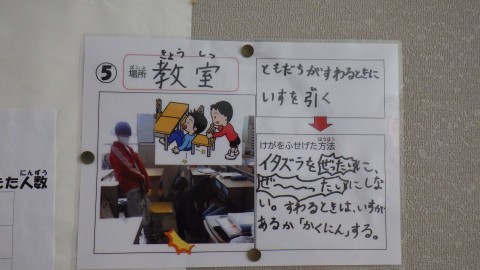 ⑤ 場所 ばしょ 教室 きょうしつ
ともだちがすわるときに
いすを引く
けがをふせげた方法 ほうほう
イタズラをぜったいに、
ぜ〜ったいにしな
い。すわるときは、いすが
あるか「かくにん」する。
た人数 にんずう